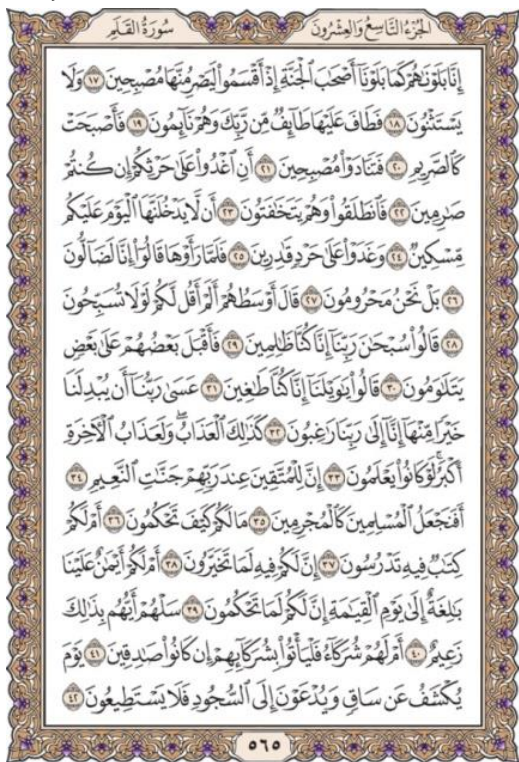 الجزء التاسع والعشرون
سورة القلم
إِنَّا بَلَوْنَٰهُمْ كَمَا بَلَوْنَآ أَصْحَٰبَ ٱلْجَنَّةِ إِذْ أَقْسَمُوا۟ لَيَصْرِمُنَّهَا مُصْبِحِينَ ١٧ وَلَا
يَسْتَثْنُونَ ١٨ فَطَافَ عَلَيْهَا طَآئِفٌ مِّن رَّبِّكَ وَهُمْ نَآئِمُونَ ١٩ فَأَصْبَحَتْ
كَٱلصَّرِيمِ ٢٠ فَتَنَادَوْا۟ مُصْبِحِينَ ٢١ أَنِ ٱغْدُوا۟ عَلَىٰ حَرْثِكُمْ إِن كُنتُمْ
صَٰرِمِينَ ٢٢ فَٱنطَلَقُوا۟ وَهُمْ يَتَخَٰفَتُونَ ٢٣ أَن لَّا يَدْخُلَنَّهَا ٱلْيَوْمَ عَلَيْكُم
مِّسْكِينٌ ٢٤ وَغَدَوْا۟ عَلَىٰ حَرْدٍ قَٰدِرِينَ ٢٥ فَلَمَّا رَأَوْهَا قَالُوٓا۟ إِنَّا لَضَآلُّونَ
٢٦ بَلْ نَحْنُ مَحْرُومُونَ ٢٧ قَالَ أَوْسَطُهُمْ أَلَمْ أَقُل لَّكُمْ لَوْلَا تُسَبِّحُونَ
٢٨ قَالُوا۟ سُبْحَٰنَ رَبِّنَآ إِنَّا كُنَّا ظَٰلِمِينَ ٢٩ فَأَقْبَلَ بَعْضُهُمْ عَلَىٰ بَعْضٍ
يَتَلَٰوَمُونَ ٣٠ قَالُوا۟ يَٰوَيْلَنَآ إِنَّا كُنَّا طَٰغِينَ ٣١ عَسَىٰ رَبُّنَآ أَن يُبْدِلَنَا
خَيْرًا مِّنْهَآ إِنَّآ إِلَىٰ رَبِّنَا رَٰغِبُونَ ٣٢ كَذَٰلِكَ ٱلْعَذَابُ ۖ وَلَعَذَابُ ٱلْءَاخِرَةِ
أَكْبَرُ ۚ لَوْ كَانُوا۟ يَعْلَمُونَ ٣٣ إِنَّ لِلْمُتَّقِينَ عِندَ رَبِّهِمْ جَنَّٰتِ ٱلنَّعِيمِ ٣٤
أَفَنَجْعَلُ ٱلْمُسْلِمِينَ كَٱلْمُجْرِمِينَ ٣٥ مَا لَكُمْ كَيْفَ تَحْكُمُونَ ٣٦ أَمْ لَكُمْ
كِتَٰبٌ فِيهِ تَدْرُسُونَ ٣٧ إِنَّ لَكُمْ فِيهِ لَمَا تَخَيَّرُونَ ٣٨ أَمْ لَكُمْ أَيْمَٰنٌ عَلَيْنَا
بَٰلِغَةٌ إِلَىٰ يَوْمِ ٱلْقِيَٰمَةِ ۙ إِنَّ لَكُمْ لَمَا تَحْكُمُونَ ٣٩ سَلْهُمْ أَيُّهُم بِذَٰلِكَ
زَعِيمٌ ٤٠ أَمْ لَهُمْ شُرَكَآءُ فَلْيَأْتُوا۟ بِشُرَكَآئِهِمْ إِن كَانُوا۟ صَٰدِقِينَ ٤١ يَوْمَ
يُكْشَفُ عَن سَاقٍ وَيُدْعَوْنَ إِلَى ٱلسُّجُودِ فَلَا يَسْتَطِيعُونَ ٤٢
٥٦٥